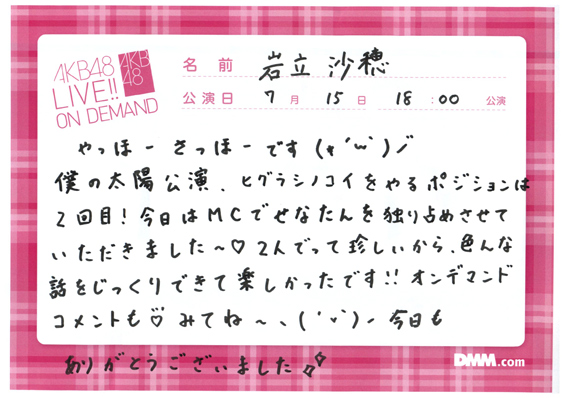 AKB48
LIVE!!
ON DEMAND
AKB
48
名前 岩立 沙穂
公演日 7月 15日 18:00 公演
やっほー さっほーです(*´ω`)ノ
僕の太陽公演、ヒグラシノコイをやるポジションは
2回目!今日はMCでせなたんを独り占めさせて
いただきました〜♡2人でって珍しいから、色んな
話をじっくりできて楽しかったです!!オンデマンド
コメントも♡みてね〜、(´ᵕ`)- 今日も
ありがとうございました
DMM.com